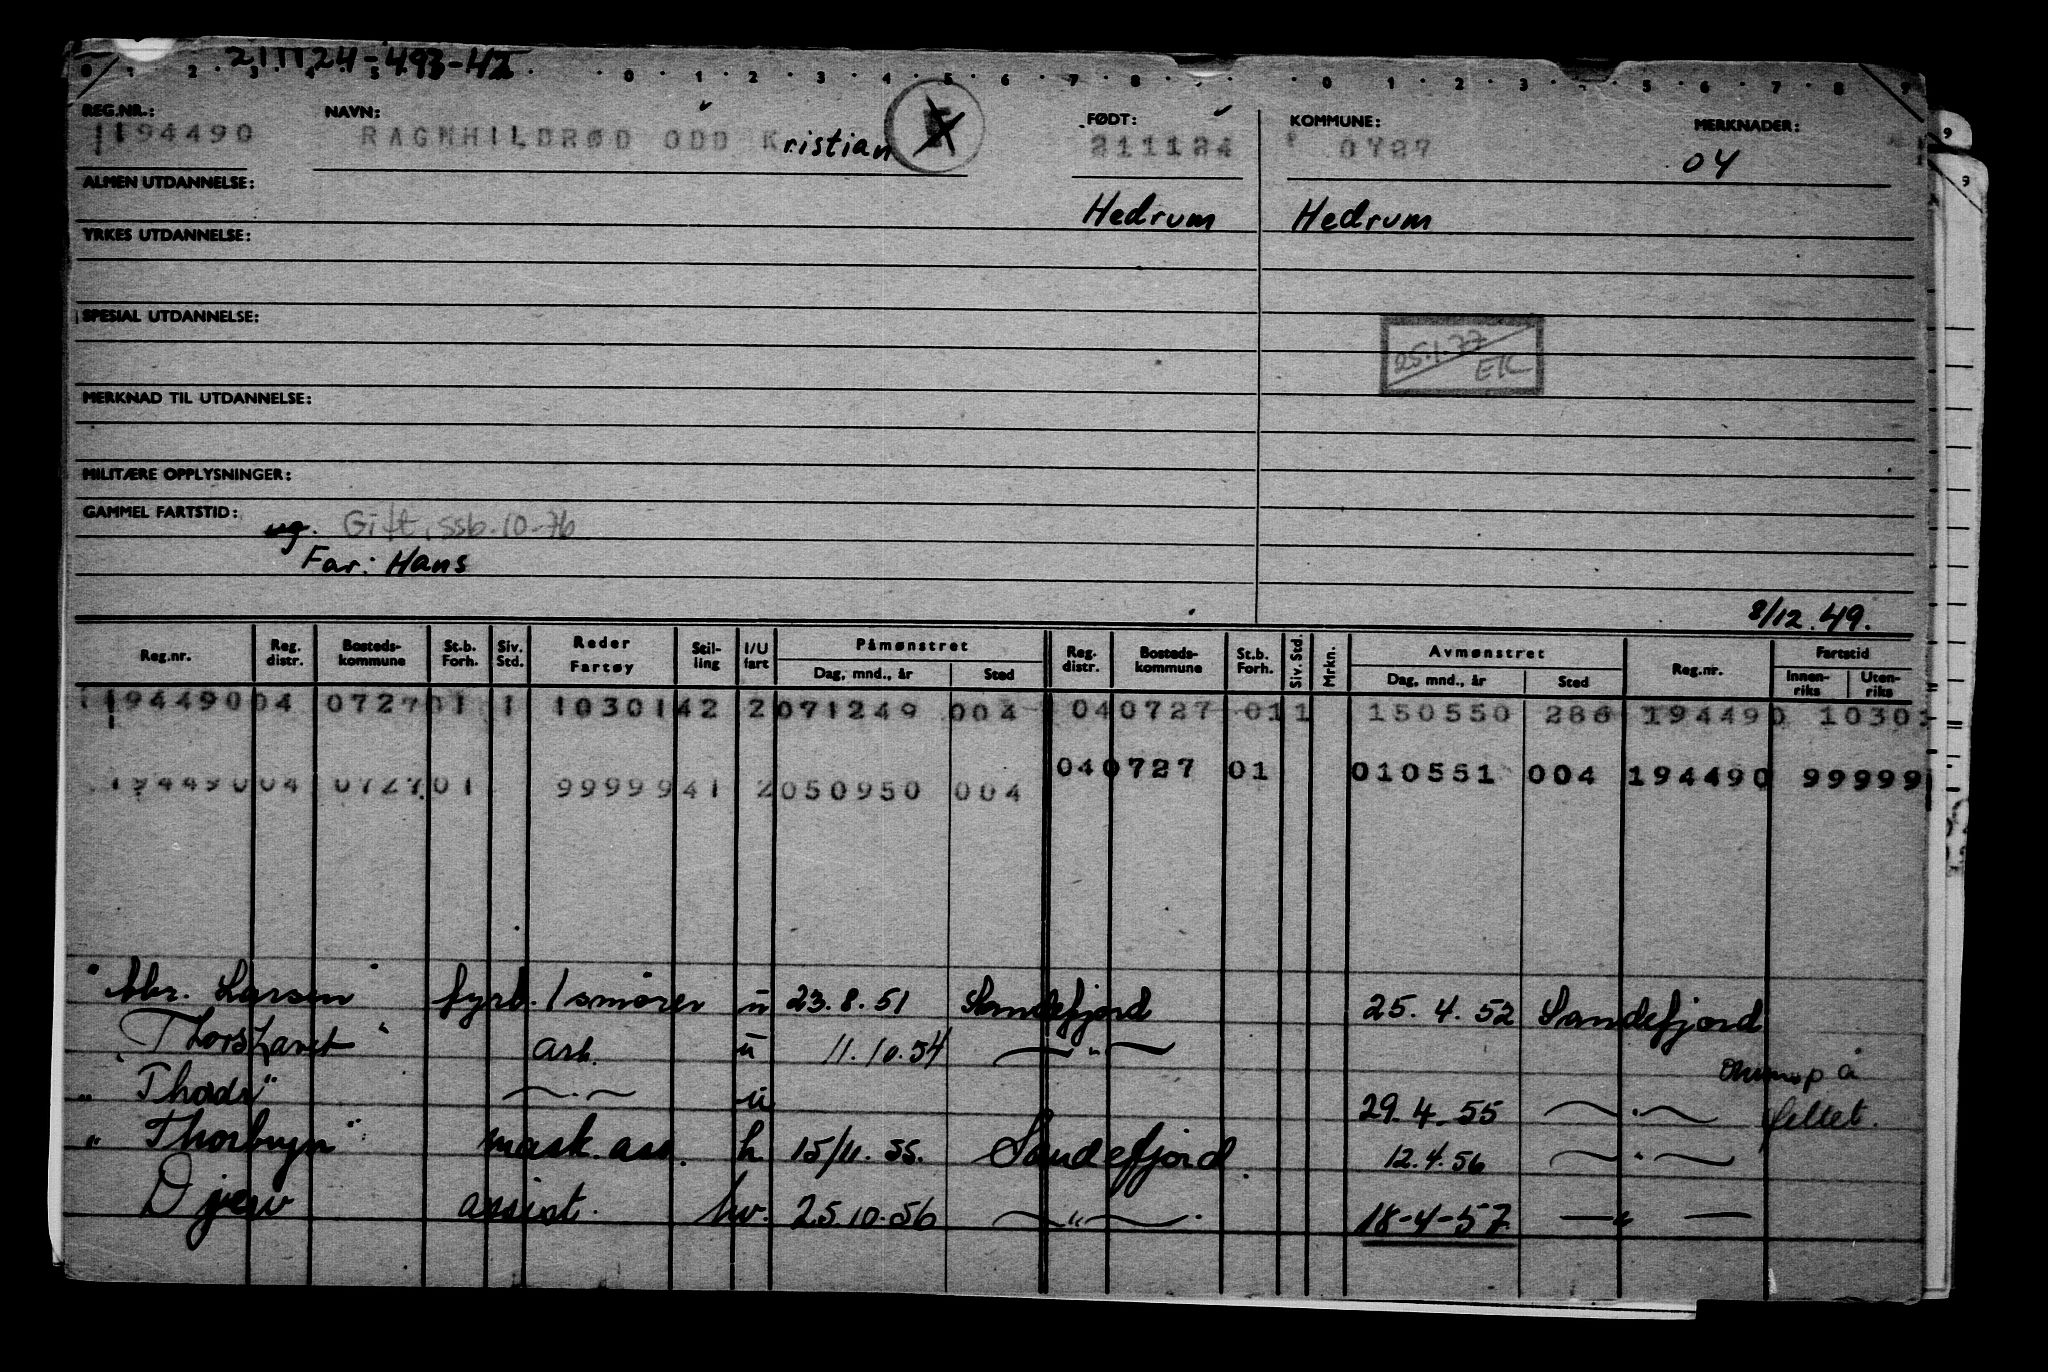 211124-493-42
0 1 2 3 4 5 0 1 2 3 4 5 6 7 8 0 1 2 3 5 6 7 8 9
REG.NR.: NAVN: FØDT: KOMMUNE: MERKNADER:
194490 RAGNHILDRØD ODD Kristian 211124 0727 04
ALMEN UTDANNELSE: Hedrum Hedrum
YRKES UTDANNELSE:
SPESIAL UTDANNELSE:
25.1.77 EK
MERKNAD TIL UTDANNELSE:
MILITÆRE OPPLYSNINGER:
GAMMEL FARTSTID: ug. Gift, ssb. 10-76
Far: Hans
8/12.49.
Reg.nr. Reg. distr. Bosteds-kommune St.b. Forh. Siv. Std. Reder Fartøy Stil-ling I/U fart Påmønstret Dag, mnd., år Sted Reg. distr. Bosteds-kommune St.b. Forh. Siv. Std. Mrkn. Avmønstret Dag, mnd., år Sted Reg.nr. Fartstid Innen-riks Uten-riks
194490 04 0727 01 1 10301 42 2 071249 004 04 0727 01 1 150550 286 194490 10301
194490 04 0727 01 99999 41 2 050950 004 04 0727 01 010551 004 194490 99999
"Abr. Larsen" fyrb./smører u 23.8.51 Sandefjord 25.4.52 Sandefjord
Thorshavet" arb. u 11.10.54 — " —
" Thode" — . — u 29.4.55 — . — på feltet.
" Thorbryn" mask. ass. h 15/11.55. Sandefjord. 12.4.56 — " —
Djerv assist. hv. 25.10.56 — " — . 18-4-57 — " —